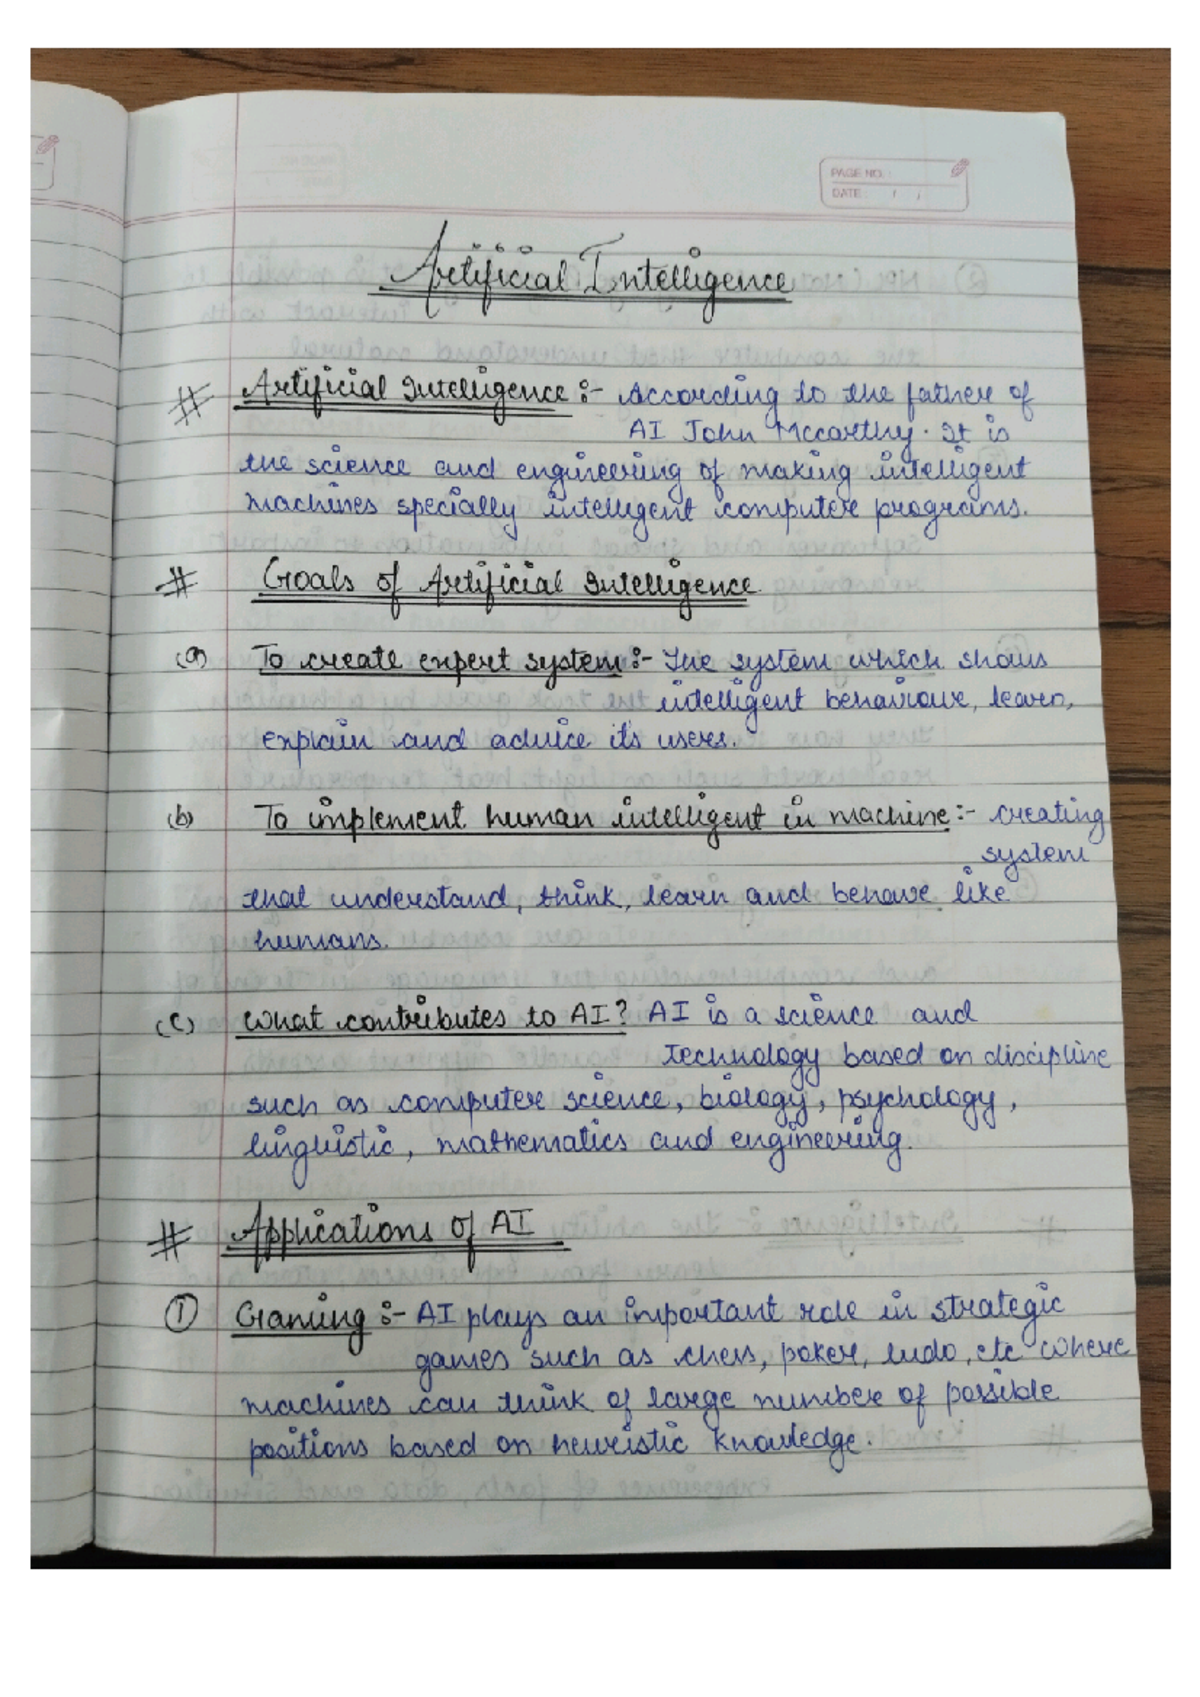 PAGE NO. :
DATE : / /
Artificial Intelligence
# Artificial Intelligence :- According to the father of
AI John Mccarthy. It is
the science and engineering of making intelligent
machines specially intelligent computer programs.
# Goals of Artificial Intelligence
(a) To create expert system :- The system which shows
intelligent behaviour, learn,
explain and advice its users.
(b) To implement human intelligent in machine :- creating
system
that understand, think, learn and behave like
humans.
(c) What contributes to AI? AI is a science and
technology based on discipline
such as computer science, biology, psychology,
linguistic, mathematics and engineering.
# Applications of AI
① Gaming :- AI plays an important role in strategic
games such as chess, poker, ludo, etc where
machines can think of large number of possible
positions based on heuristic knowledge.